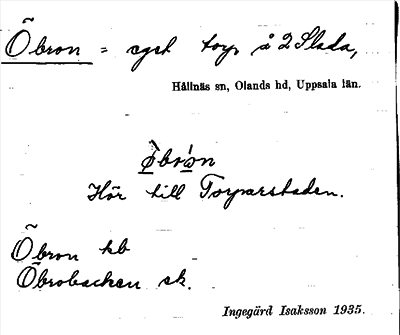 Öbron = eget torp å 2 Slada,
Hållnäs sn, Olands hd, Uppsala län.
Öbròn
Hör till Torparstaden.
Öbron kb
Öbrobacken sk.
Ingegärd Isaksson 1935.